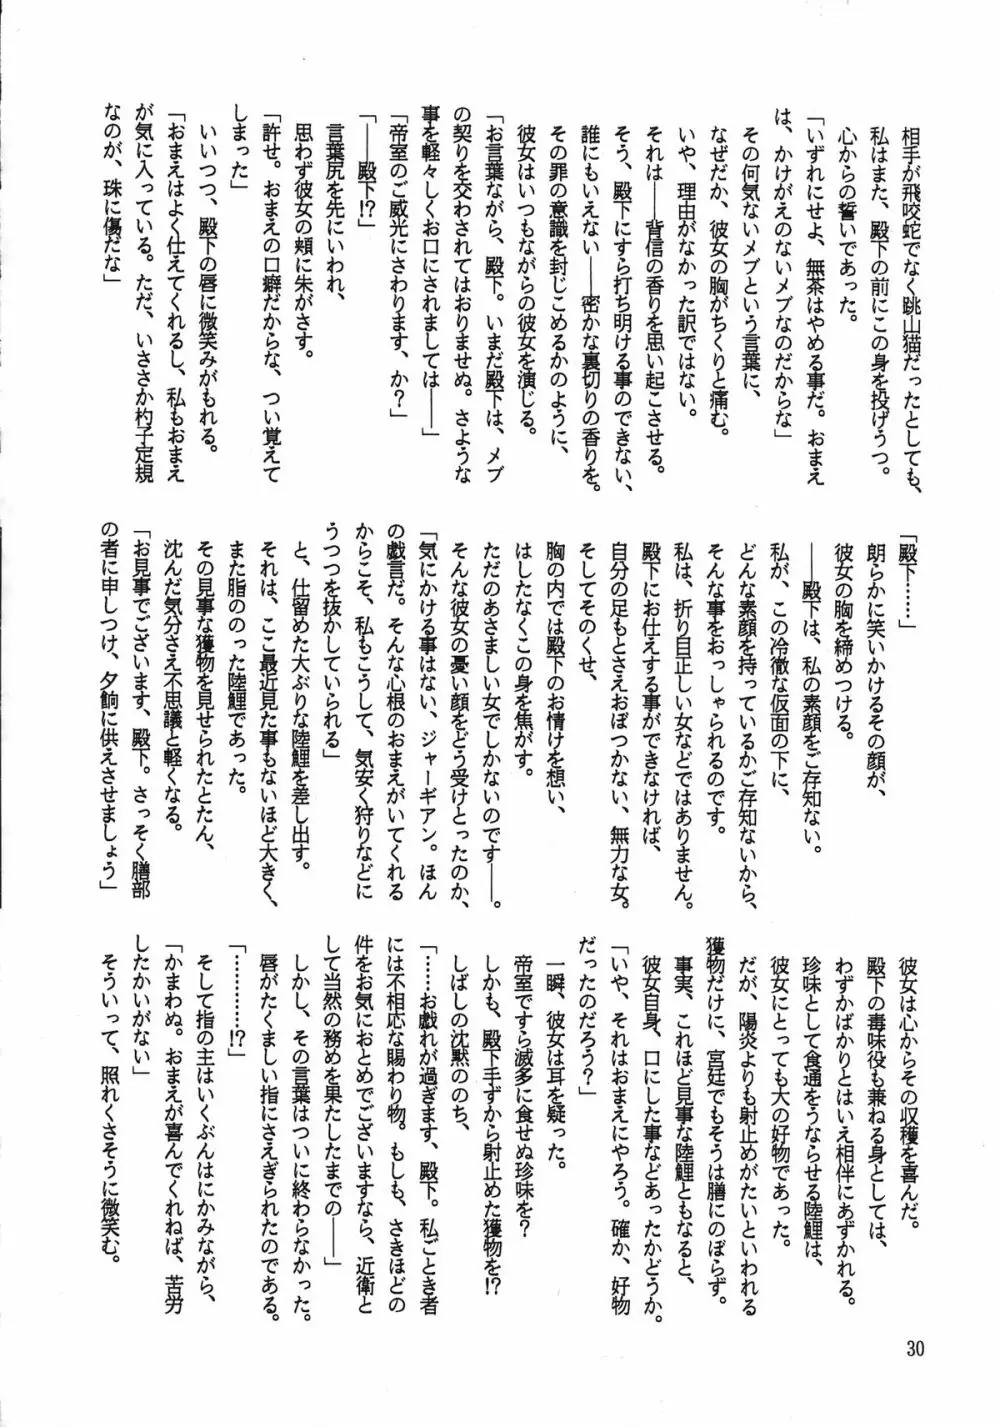 相手が飛咬蛇でなく跳山猫だったとしても、
私はまた、殿下の前にこの身を投げうつ。
心からの誓いであった。
「いずれにせよ、無茶はやめる事だ。おまえ
は、かけがえのないメブなのだからな」
その何気ないメブという言葉に、
なぜだか、彼女の胸がちくりと痛む。
いや、理由がなかった訳ではない。
それは――背信の香りを思い起こさせる。
そう、殿下にすら打ち明ける事のできない、
誰にもいえない――密かな裏切りの香りを。
その罪の意識を封じこめるかのように、
彼女はいつもながらの彼女を演じる。
「お言葉ながら、殿下。いまだ殿下は、メブ
の契りを交わされてはおりませぬ。さような
事を軽々しくお口にされましては――」
「帝室のご威光にさわります、か？」
「――殿下!?」
言葉尻を先にいわれ、
思わず彼女の頬に朱がさす。
「許せ。おまえの口癖だからな、つい覚えて
しまった」
いいつつ、殿下の唇に微笑みがもれる。
「おまえはよく仕えてくれるし、私もおまえ
が気に入っている。ただ、いささか杓子定規
なのが、珠に傷だな」
「殿下……」
朗らかに笑いかけるその顔が、
彼女の胸を締めつける。
――殿下は、私の素顔をご存知ない。
私が、この冷徹な仮面の下に、
どんな素顔を持っているかご存知ないから、
そんな事をおっしゃられるのです。
私は、折り目正しい女などではありません。
殿下にお仕えする事ができなければ、
自分の足もとさえおぼつかない、無力な女。
そしてそのくせ、
胸の内では殿下のお情けを想い、
はしたなくこの身を焦がす。
ただのあさましい女でしかないのです――。
そんな彼女の憂い顔をどう受けとったのか、
「気にかける事はない、ジャーギアン。ほん
の戯言だ。そんな心根のおまえがいてくれる
からこそ、私もこうして、気安く狩りなどに
うつつを抜かしていられる」
と、仕留めた大ぶりな陸鯉を差し出す。
それは、ここ最近見た事もないほど大きく、
また脂ののった陸鯉であった。
その見事な獲物を見せられたとたん、
沈んだ気分さえ不思議と軽くなる。
「お見事でございます、殿下。さっそく膳部
の者に申しつけ、夕餉に供えさせましょう」
彼女は心からその収穫を喜んだ。
殿下の毒味役も兼ねる身としては、
わずかばかりとはいえ相伴にあずかれる。
珍味として食通をうならせる陸鯉は、
彼女にとっても大の好物であった。
だが、陽炎よりも射止めがたいといわれる
獲物だけに、宮廷でもそうは膳にのぼらず。
事実、これほど見事な陸鯉ともなると、
彼女自身、口にした事などあったかどうか。
「いや、それはおまえにやろう。確か、好物
だったのだろう？」
一瞬、彼女は耳を疑った。
帝室ですら滅多に食せぬ珍味を？
しかも、殿下手ずから射止めた獲物を!?
しばしの沈黙ののち、
「……お戯れが過ぎます、殿下。私ごとき者
には不相応な賜わり物。もしも、さきほどの
件をお気におとめでございますなら、近衛と
して当然の務めを果たしたまでの――」
しかし、その言葉はついに終わらなかった。
唇がたくましい指にさえぎられたのである。
「…………!?」
そして指の主はいくぶんはにかみながら、
「かまわぬ。おまえが喜んでくれねば、苦労
したかいがない」
そういって、照れくさそうに微笑む。
30